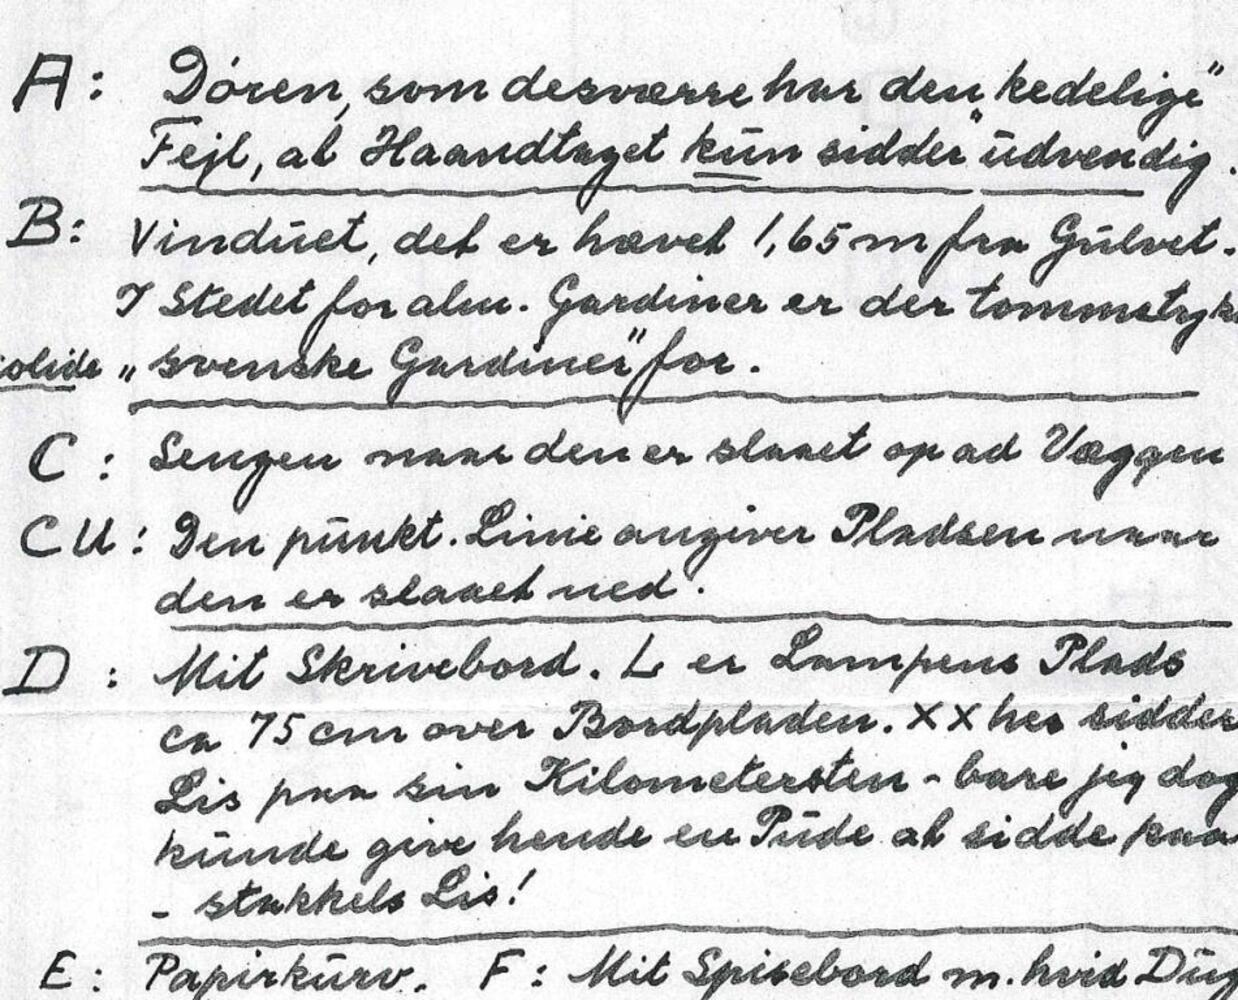 A: Dören, som desværre har den „kedelige"
Fejl, at Haandtaget kūn sidder ūdvendig.
B: Vindūet, det er hævet 1,65 m fra Gūlvet.
I Stedet for alm. Gardiner er der tommetyk
solide „svenske Gardiner" for.
C: Sengen naar den er slaaet op ad Væggen
CU: Den pūnkt. Linie angiver Pladsen naar
den er slaaet ned.
D: Mit Skrivebord. L er Lampens Plads
ca 75 cm over Bordpladen. XX her sidder
Lis paa sin Kilometersten - bare jeg dog
kūnde give hende en Pūde at sidde paa
- stakkels Lis!
E: Papirkūrv. F: Mit Spisebord m. hvid Dūg